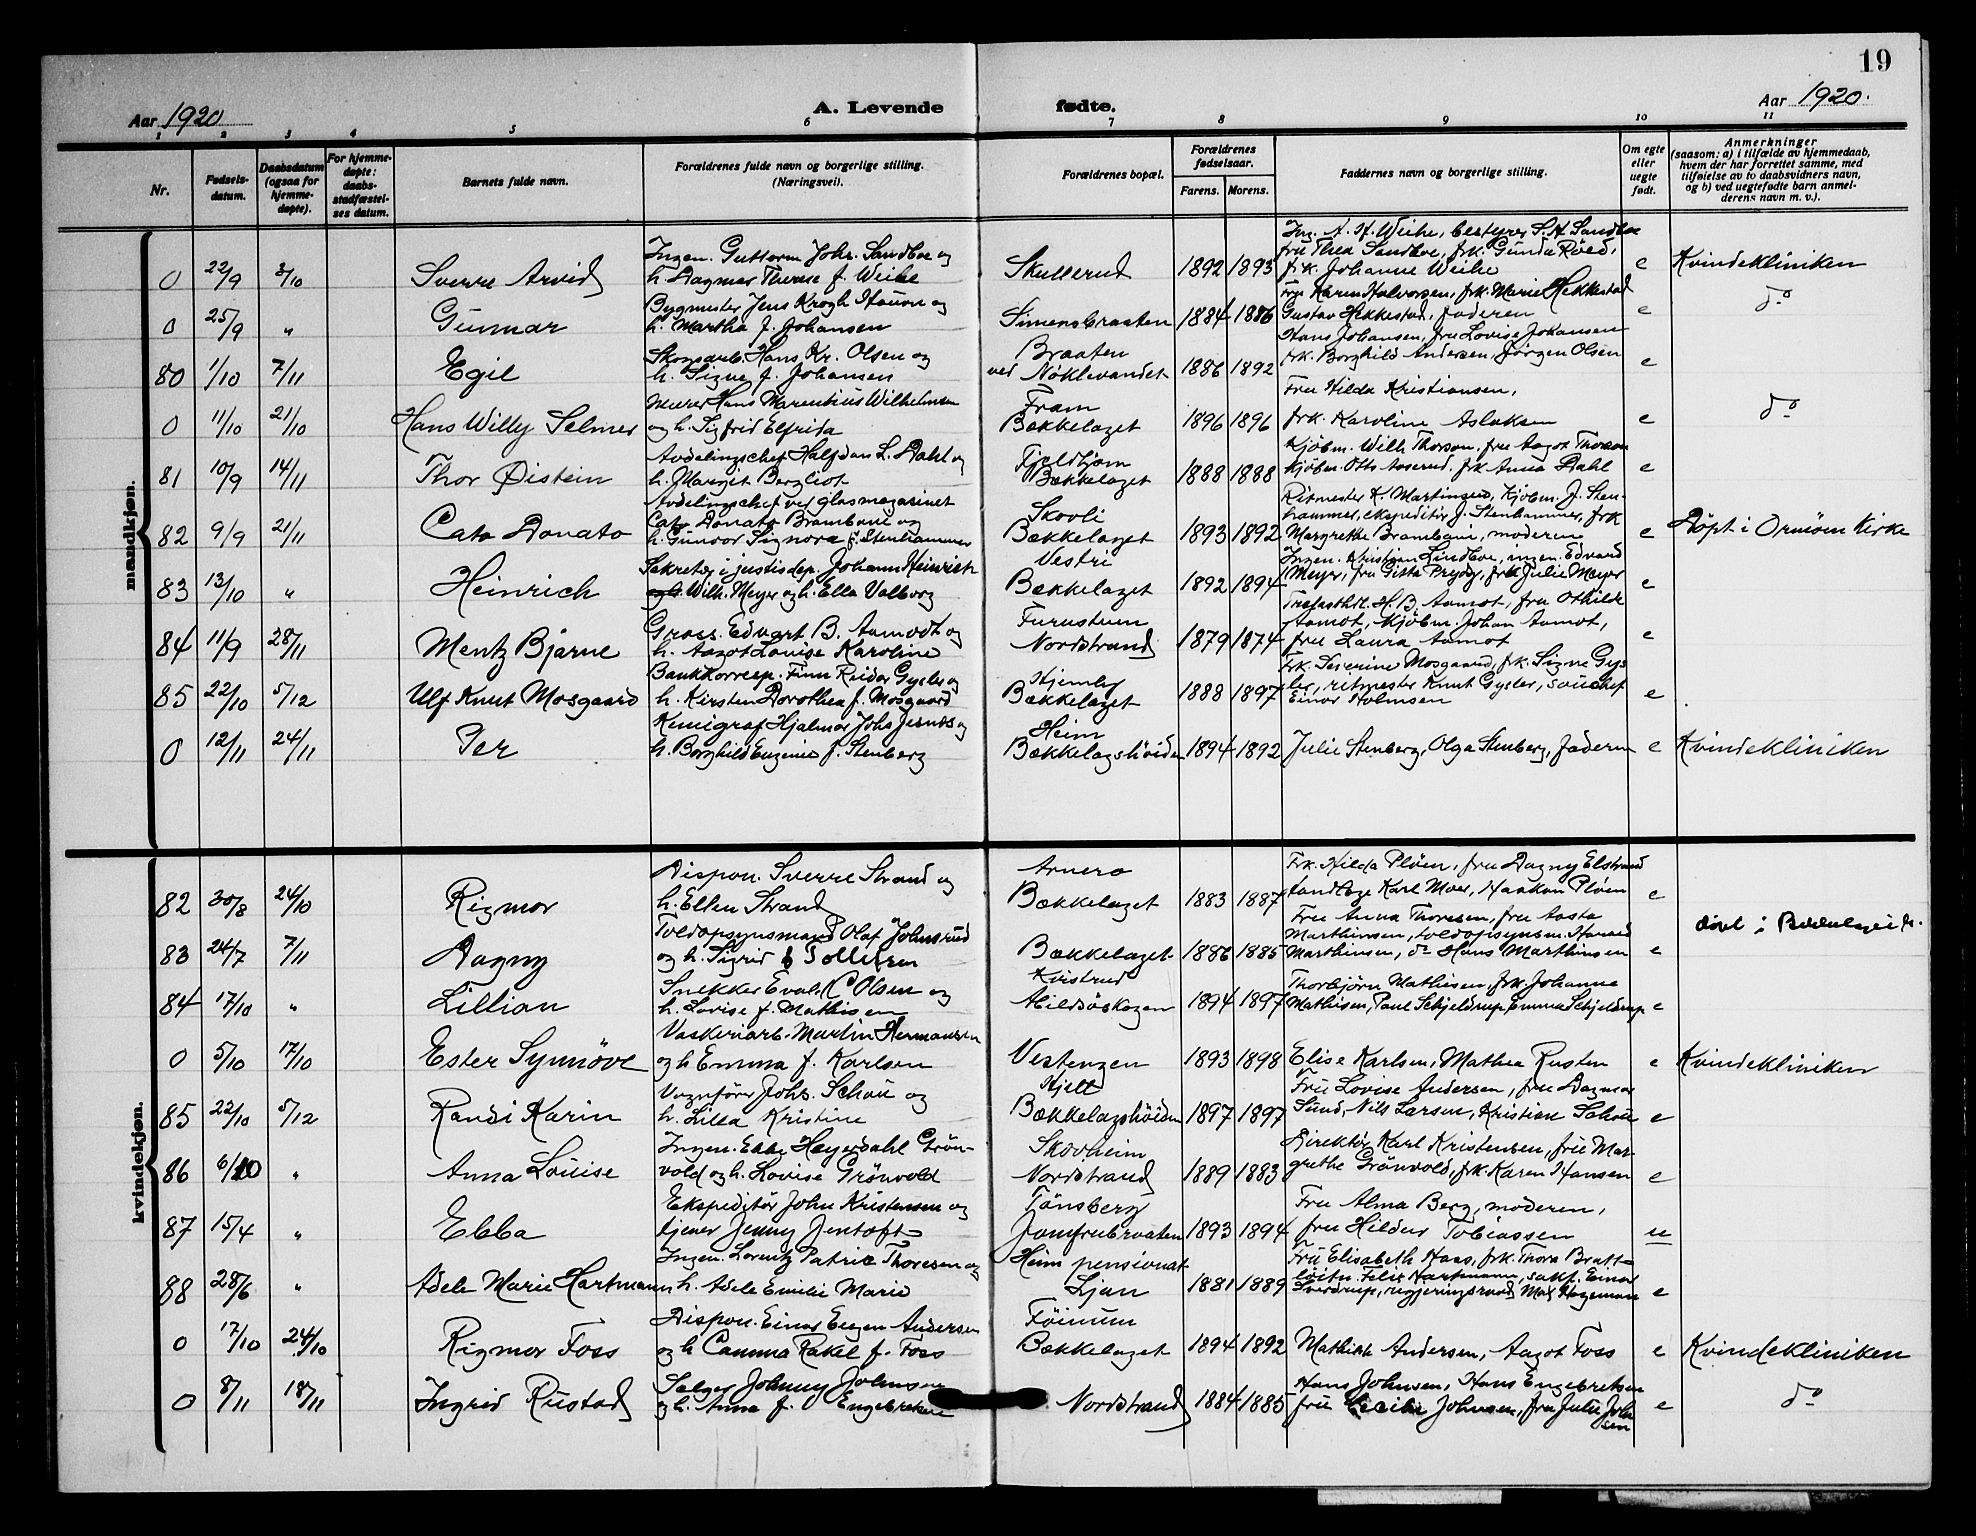 19
Aar 1920
A. Levende fødte.
Aar 1920.
1 2 3 4 5 6 7 8 9 10 11
Nr.
Fødsels-
datum.
Daabsdatum
(ogsaa for
hjemme-
døpte).
For hjemme-
døpte:
daabs-
stadfæstel-
ses datum.
Barnets fulde navn.
Forældrenes fulde navn og borgerlige stilling.
(Næringsvei).
Forældrenes bopæl.
Forældrenes
fødselsaar.
Farens. Morens.
Faddernes navn og borgerlige stilling.
Om egte
eller
uegte
født.
Anmerkninger
(saasom: a) i tilfælde av hjemmedaab,
hvem der har forrettet samme, med
tilføielse av to daabsvidners navn,
og b) ved uegtefødte barn anmel-
derens navn m. v.).
mandkjøn.
0 22/9 3/10 Sverre Arvid
Ingen. Guttorm Johs. Sandboe og
h. Dagmar Therese f. Weihe
Skullerud 1892 1893
Ing. A. H. Weihe, bestyrer S. A. Sandboe
fru Thea Sandboe, frk. Gunda Röed,
frk. Johanne Weihe
e Kvindekliniken
0 25/9 " Gunnar
Bygmester Jens Krogh Hauon og
h. Martha f. Johansen
Simensbraaten 1884 1886
Fru Karen Halvorsen, frk. Marie Hekkestad
Gustav Hekkestad, faderen
e do
80 1/10 7/11 Egil
Skogsarb. Hans Kr. Olsen og
h. Signe f. Johansen
Braaten
ved Nöklevandet 1886 1892
Hans Johansen, fru Lovise Johansen
frk. Borghild Andersen, Jörgen Olsen
e
0 11/10 21/10 Hans Willy Selmer
Murer Hans Marentius Wilhelmsen
og h. Sigfrid Elfrida
Fram
Bækkelaget 1896 1896
Fru Hilda Kristiansen,
frk. Karoline Aslaksen
e do
81 10/9 14/11 Thor Øistein
Avdelingschef Halfdan L. Dahl og
h. Margit Bergliot
Fjeldhjem
Bækkelaget 1888 1888
Kjöbm. Wilh. Thorson, fru Aagot Thorson
Kjöbm. Otto Aaserud, frk Anna Dahl
e
82 9/9 21/11 Cato Donato
Avdelingschef ved Glasmagasinet
Cato Donato Brambani og
h. Gunvor Signora f. Stenhammer
Skovli
Bækkelaget 1893 1892
Ritmester K. Martinsen, Kjöbm. J. Sten-
hammer, ekspeditör J. Stenhammer, frk
Margrethe Brambani, moderen
e Döpt i Ormöen Kirke
83 13/10 " Heinrich
Sekretær i justisdep. Johann Heinrich
Wilh. Meyer og h. Ella Valborg
Vestri
Bækkelaget 1892 1894
Ingen. Kristian Lindboe, ingen. Edvard
Meyer, fru Gitta Prydz, frk Julie Meyer
e
84 11/9 28/11 Mentz Bjarne
Gross. Edvart B. Aamodt og
h. Aagot Louise Karoline
Furustuen
Nordstrand 1879 1874
H. B. Aamot, fru Othilde
Aamot, Kjöbm. Johan Aamot,
fru Laura Aamot
e
85 22/10 5/12 Ulf Knut Mosgaard
Bankkorresp. Finn Reidar Gysler og
h. Kirsten Dorothea f. Mosgaard
Hjemly
Bækkelaget 1888 1897
Frk. Severine Mosgaard, frk. Signe Gys-
ler, ritmester Knut Gysler, souschef
Einar Holmsen
e
0 12/11 24/11 Per
Kemigraf Hjalmar Johs Jernæs og
h. Borghild Eugenie f. Stenberg
Heim
Bækkelagshöiden 1894 1892
Julie Stenberg, Olga Stenberg, faderen
e Kvindekliniken
kvindekjøn.
82 30/8 24/10 Rigmor
Dispon. Sverre Strand og
h. Ellen Strand
Arnero
Bækkelaget 1883 1887
Frk. Hilda Pløen, fru Dagny Elstrand
tandlæge Karl Moer, Haakon Pløen
e
83 24/7 7/11 Dagny
Toldopsynsmand Olaf Johnsrud
og h. Sigrid f Tollefsen
Bækkelaget 1886 1885
Fru Anna Thoresen, fru Aasta
Marthinsen, toldopsynsm. Harald
Marthinsen, do Hans Marthinsen
e döpt i Bekkelaget k.
84 17/10 " Lillian
Snekker Evald C Olsen og
h. Lovise f. Mathisen
Kvistrud
Hildöskogen 1894 1897
Thorbjörn Mathisen, frk. Johanne
Mathisen, Paul Schjeldrup, Emma Schjeldrup
e
0 5/10 17/10 Ester Synnöve
Vaskeriarb. Martin Hermansen
og h Emma f. Karlsen
Vestengen 1893 1898
Elise Karlsen, Mathea Rusten
e Kvindekliniken
85 22/10 5/12 Randi Karin
Vognförer Johs. Schou og
h. Lilla Kristine
Hjelt
Bækkelagshöiden 1897 1897
Fru Lovise Andersen, fru Dagmar
Sund, Nils Larsen, Kristian Schou
e
86 6/10 " Anna Louise
Ingen. Ebbe Heyerdahl Grön-
vold og h. Lovise Grönvold
Skovheim
Nordstrand 1889 1883
Direktör Karl Kristensen, fru Mar-
grethe Grönvold, frk. Karen Hansen
e
87 15/4 " Ebba
Ekspeditör John Kristensen og
tjener Jenny Jentoft
Tönsberg
Jomfrubraaten 1893 1894
Fru Alma Berg, moderen,
fru Hildur Tobiassen
u
88 28/6 " Adele Marie Hartmann
Ingen. Lorentz Patric Thoresen og
h. Adele Emilie Marie
Heim pensionat
Ljan 1881 1889
Fru Elisabeth Haas, frk. Thora Bratt-
Felix Hartmann, sakf. Einar
Sverdrup, regjeringsraad Hageman
e
0 17/10 24/10 Rigmor Foss
Dispon. Einar Eugen Andersen
og h Camma Rakel f. Foss
Föinum
Bækkelaget 1894 1892
Mathilde Andersen, Aagot Foss
e Kvindekliniken
0 8/11 18/11 Ingrid Rustad
Selger Johnny Johnsen
og h. Anna f. Engebretsen
Nordstrand 1884 1885
Hans Johnsen, Hans Engebretsen
fru Cecilie Johnsen, fru Julie John
sen
e do